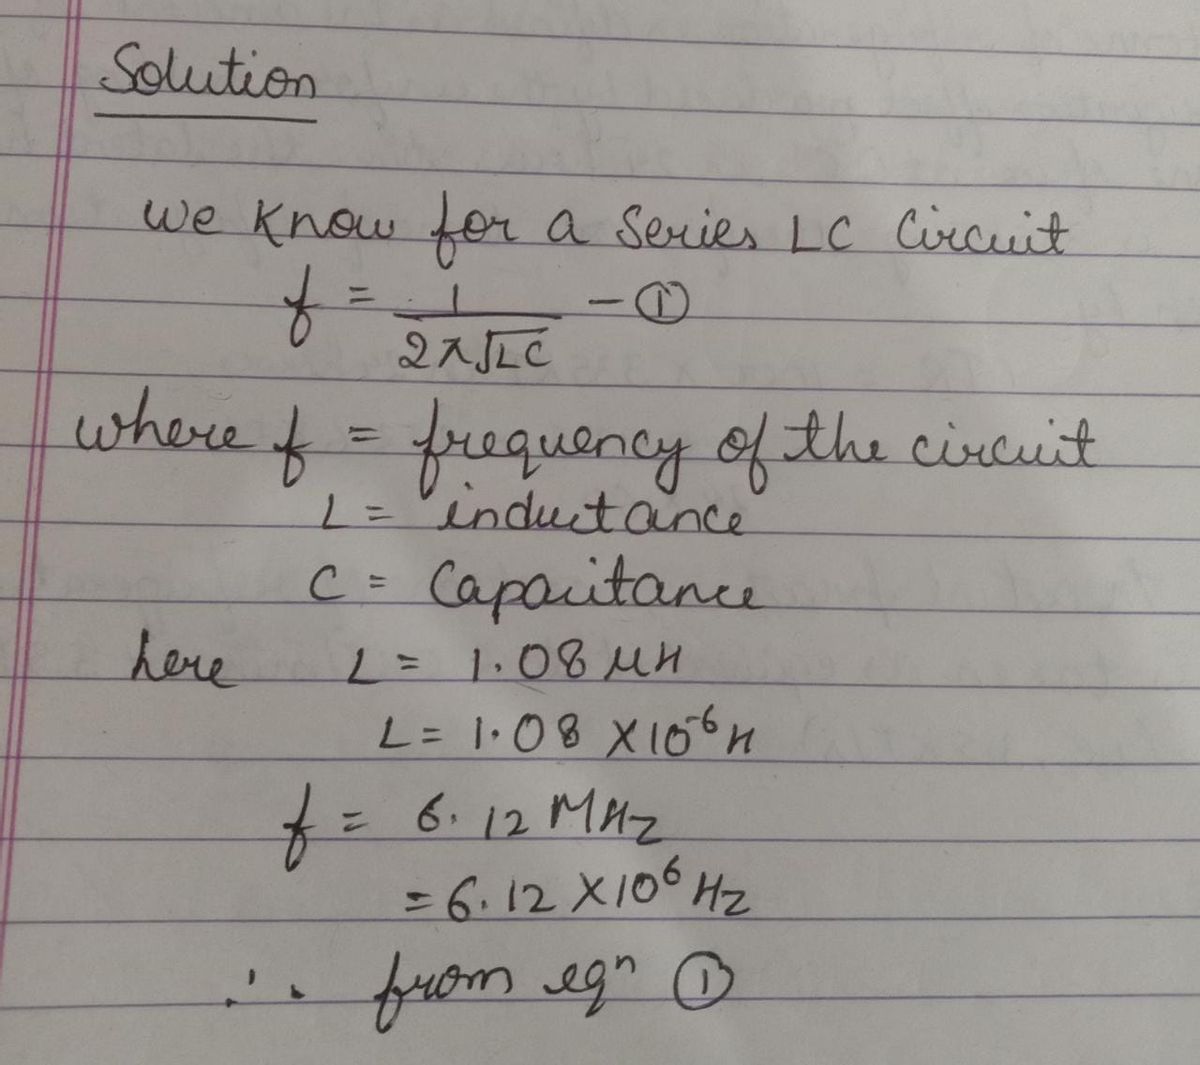 Solution
we know for a series LC Circuit
f = 1 / 2π√LC - ①
where f = frequency of the circuit
L = inductance
C = Capacitance
here L = 1.08 μH
L = 1.08 × 10⁻⁶ H
f = 6.12 MHz
= 6.12 × 10⁶ Hz
∴ from eqⁿ ①